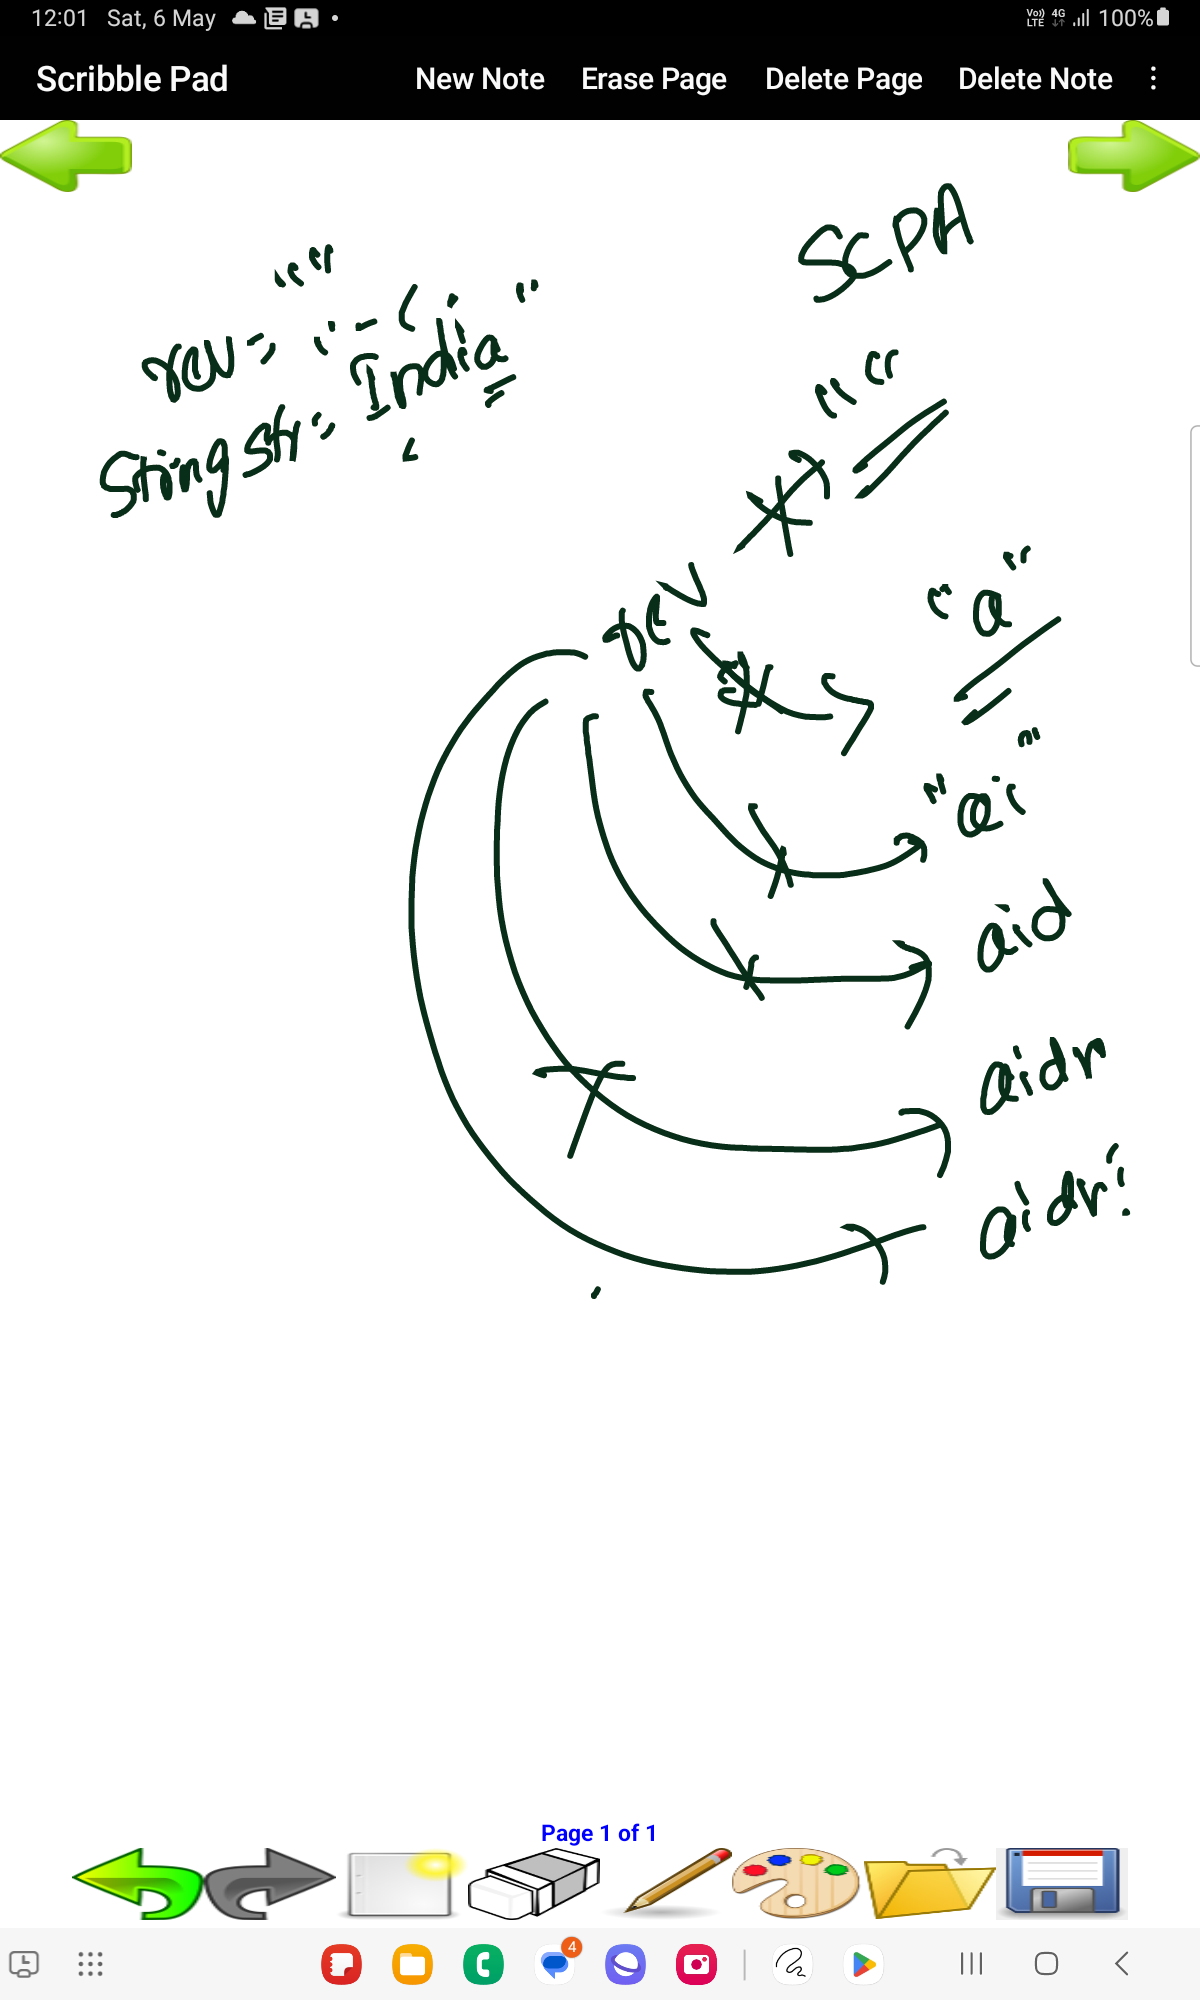 12:01 Sat, 6 May
Vo)) LTE 4G 100%
Scribble Pad New Note Erase Page Delete Page Delete Note
SCPA
""
rev =
String str = "India"
""
rev
"a"
"ai"
aid
aidn
aidni
Page 1 of 1
4